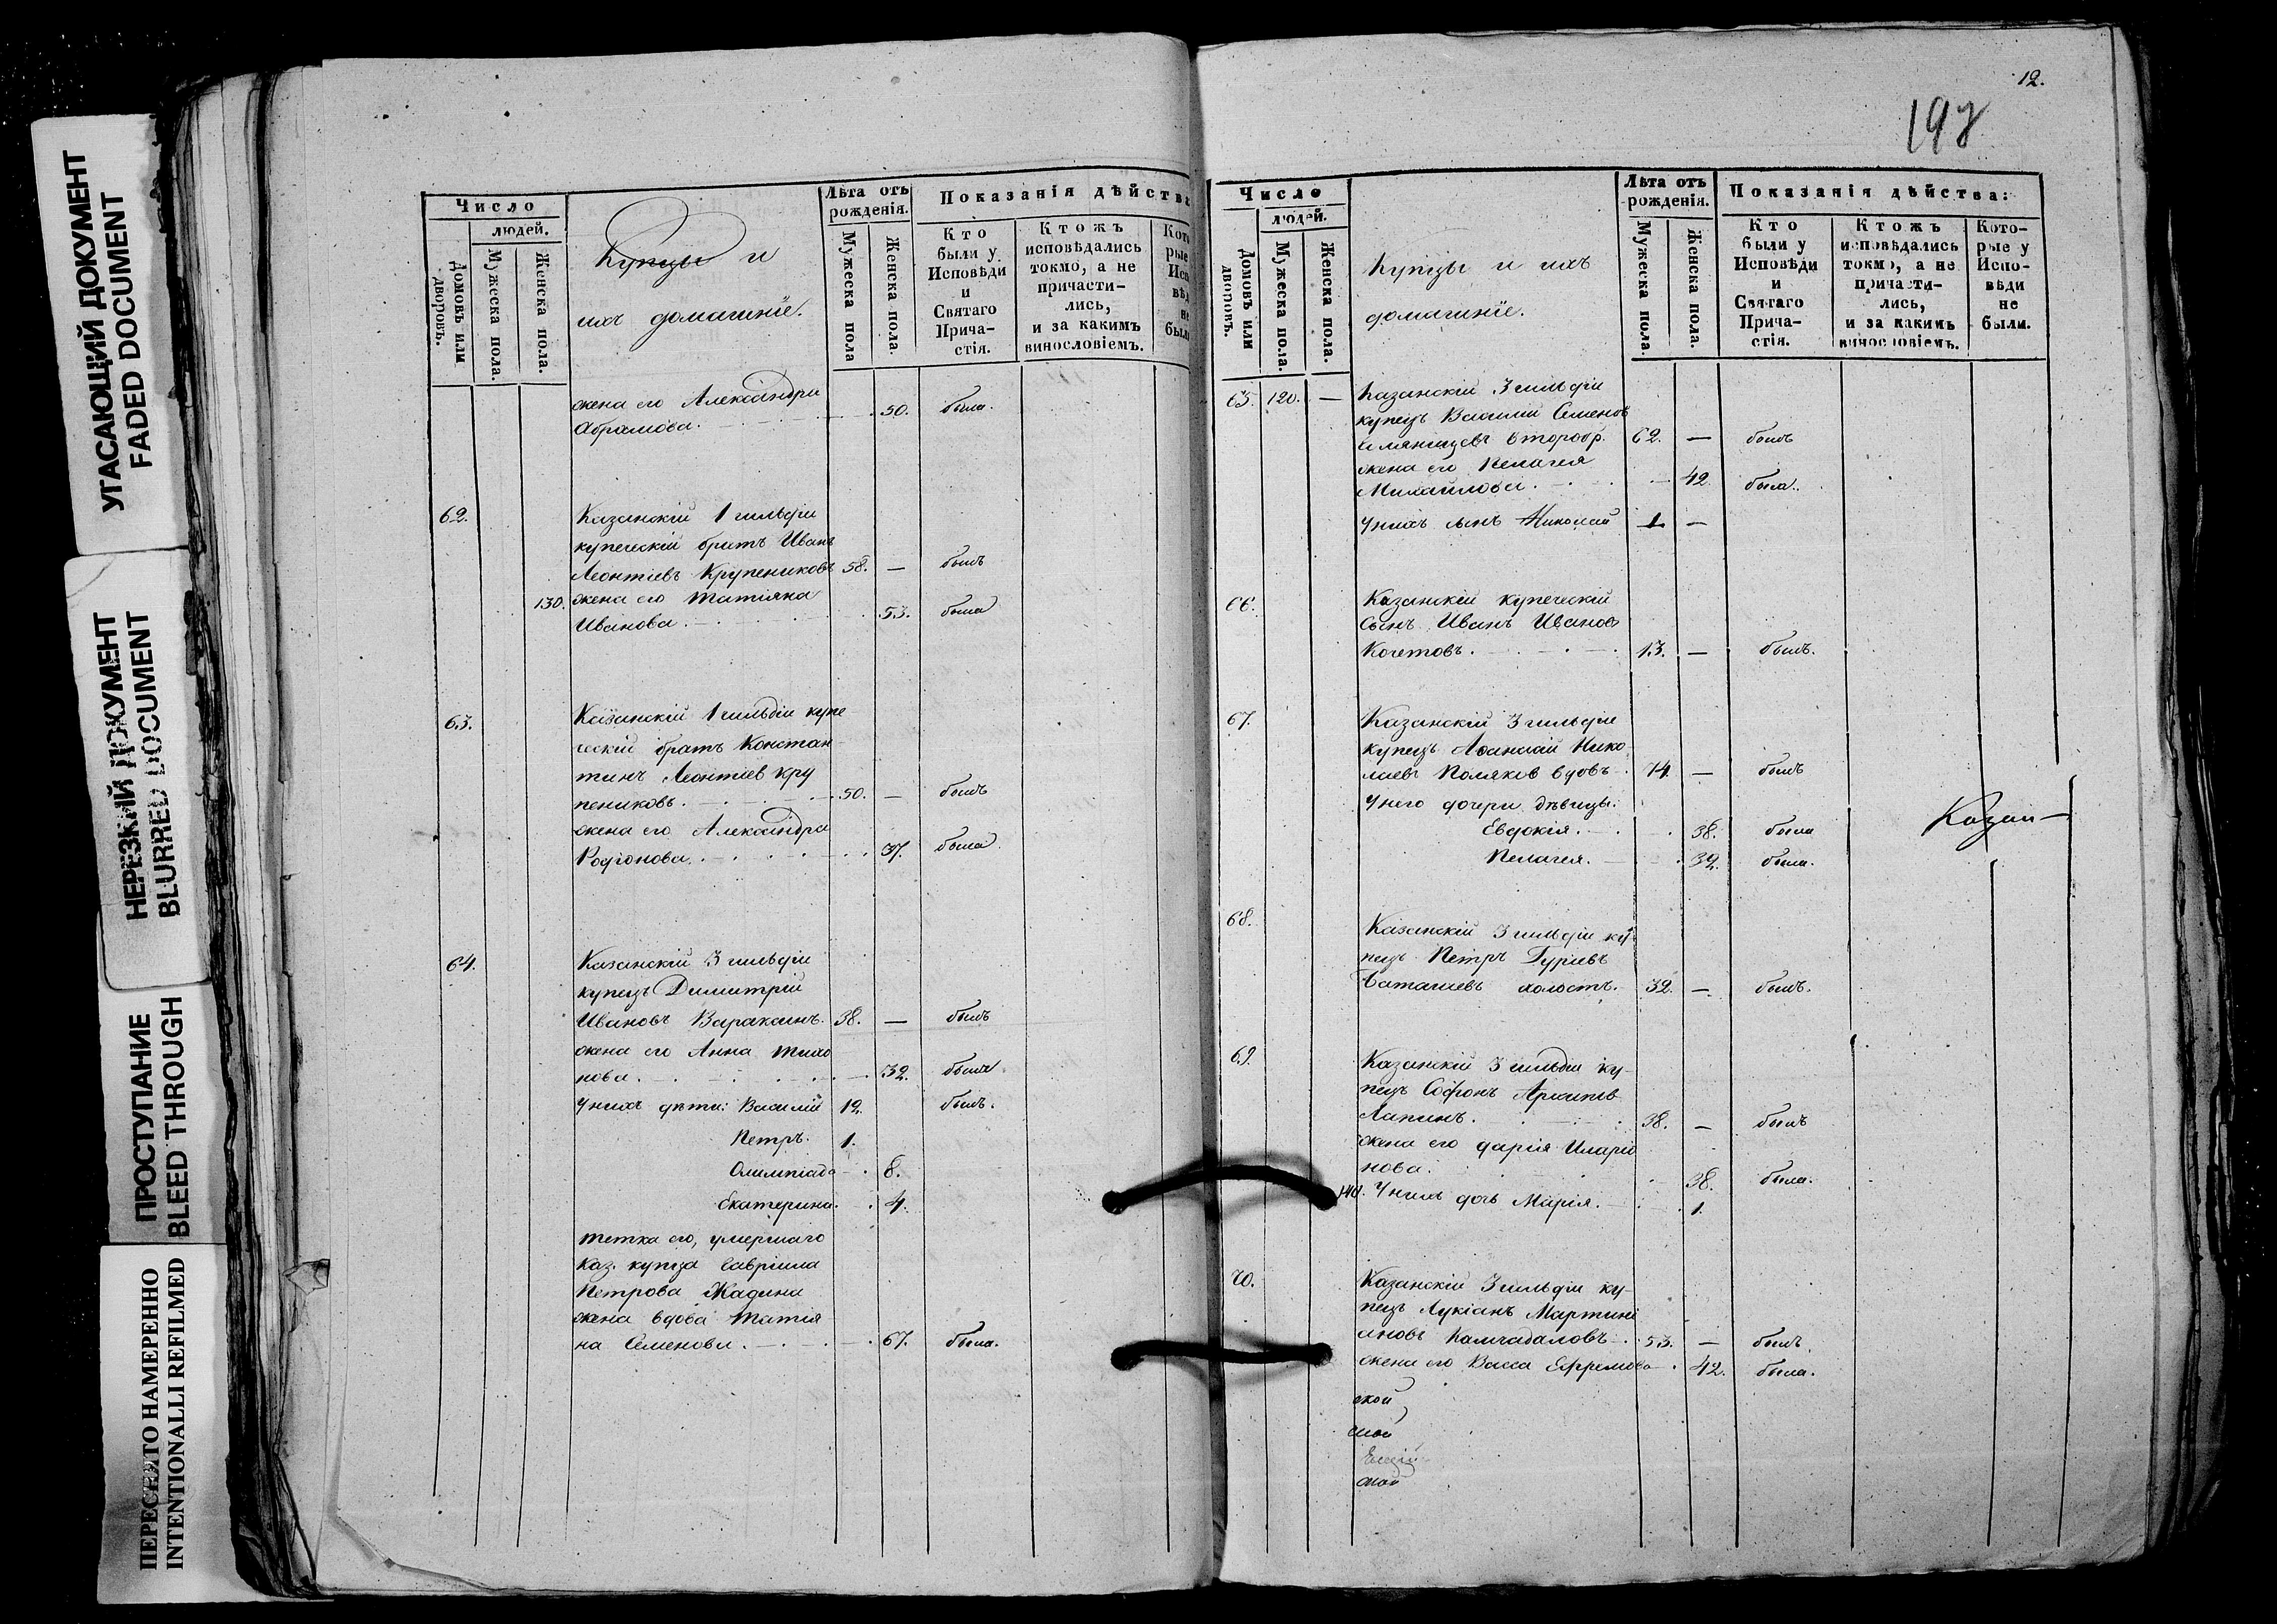 УГАСАЮЩИЙ ДОКУМЕНТ
FADED DOCUMENT
НЕРЕЗКИЙ ДОКУМЕНТ
BLURRED DOCUMENT
ПРОСТУПАНИЕ
BLEED THROUGH
ПЕРЕСНЯТО НАМЕРЕННО
INTENTIONALLI REFILMED
Число
людей.
Домовъ или дворовъ.
Мужеска пола.
Женска пола.
Купцы и
ихъ домашніе.
Лѣта отъ
рожденія.
Мужеска пола
Женска пола.
Показанія дѣйства
Кто
были у
Исповѣди
и
Святаго
Прича-
стія.
Ктожъ
исповѣдались
токмо, а не
причасти-
лись,
и за какимъ
винословіемъ.
жена его Александра
Абрамова. 50. была.
62. Казанскій 1 гильдіи
купеческій братъ Иванъ
Леонтіевъ Крупениковъ 58. — былъ
130. жена его Татіяна
Иванова. 53. была
63. Казанскій 1 гильдіи купе
ческій братъ Констан-
тинъ Леонтіев Кру
пениковъ. 50. — былъ
жена его Александра
Родіонова. 37. была.
64. Казанскій 3 гильдіи
купецъ Димитрій
Ивановъ Вараксинъ. 38. — былъ
жена его Анна Тихо
нова. 32. была
У нихъ дѣти: Василій 12. былъ.
Петръ. 1.
Олимпіада 8.
Екатерина. 4.
тетка его, умершаго
Каз. купца Гавріила
Петрова Жадина
жена вдова Татія
на Семенова. 67. была.
12.
197
Число
людей.
Домовъ или дворовъ.
Мужеска пола.
Женска пола.
Купцы и ихъ
домашніе.
Лѣта отъ
рожденія.
Мужеска пола.
Женска пола.
Показанія дѣйства:
Кто
были у
Исповѣди
и
Святаго
Прича-
стія.
Ктожъ
исповѣдались
токмо, а не
причасти-
лись,
и за какимъ
винословіемъ.
Кото-
рые у
Испо-
вѣди
не
были.
65. 120. — Казанскій 3 гильдіи
купецъ Василій Семенов
второбр. 62. — былъ
жена его Пелагея
Михайлова. — 42. была.
У нихъ сынъ Николай 1 —
66. Казанскій купеческій
сынъ Иванъ Иванов
Кочетовъ. 13. — былъ.
67. Казанскій 3 гильдіи
купецъ Афанасій Нико
лаевъ Поляков вдовъ 74. — былъ
У него дочери дѣвицы:
Евдокія. 38. была
Пелагея. 32. была.
Казан—
68. Казанскій 3 гильдіи ку-
пецъ Петръ Гуріевъ
Баташевъ холостъ. 32. — былъ.
69. Казанскій 3 гильдіи ку-
пецъ Софонъ Архипов
Лапинъ. 38. — былъ
жена его Дарія Иларіо
нова. 38. была.
140. У нихъ дочь Марія. 1.
70. Казанскій 3 гильдіи ку-
пецъ Лукіанъ Мартині
ановъ Камчадаловъ. 53. — былъ.
жена его Васса Ефремова 42. была.